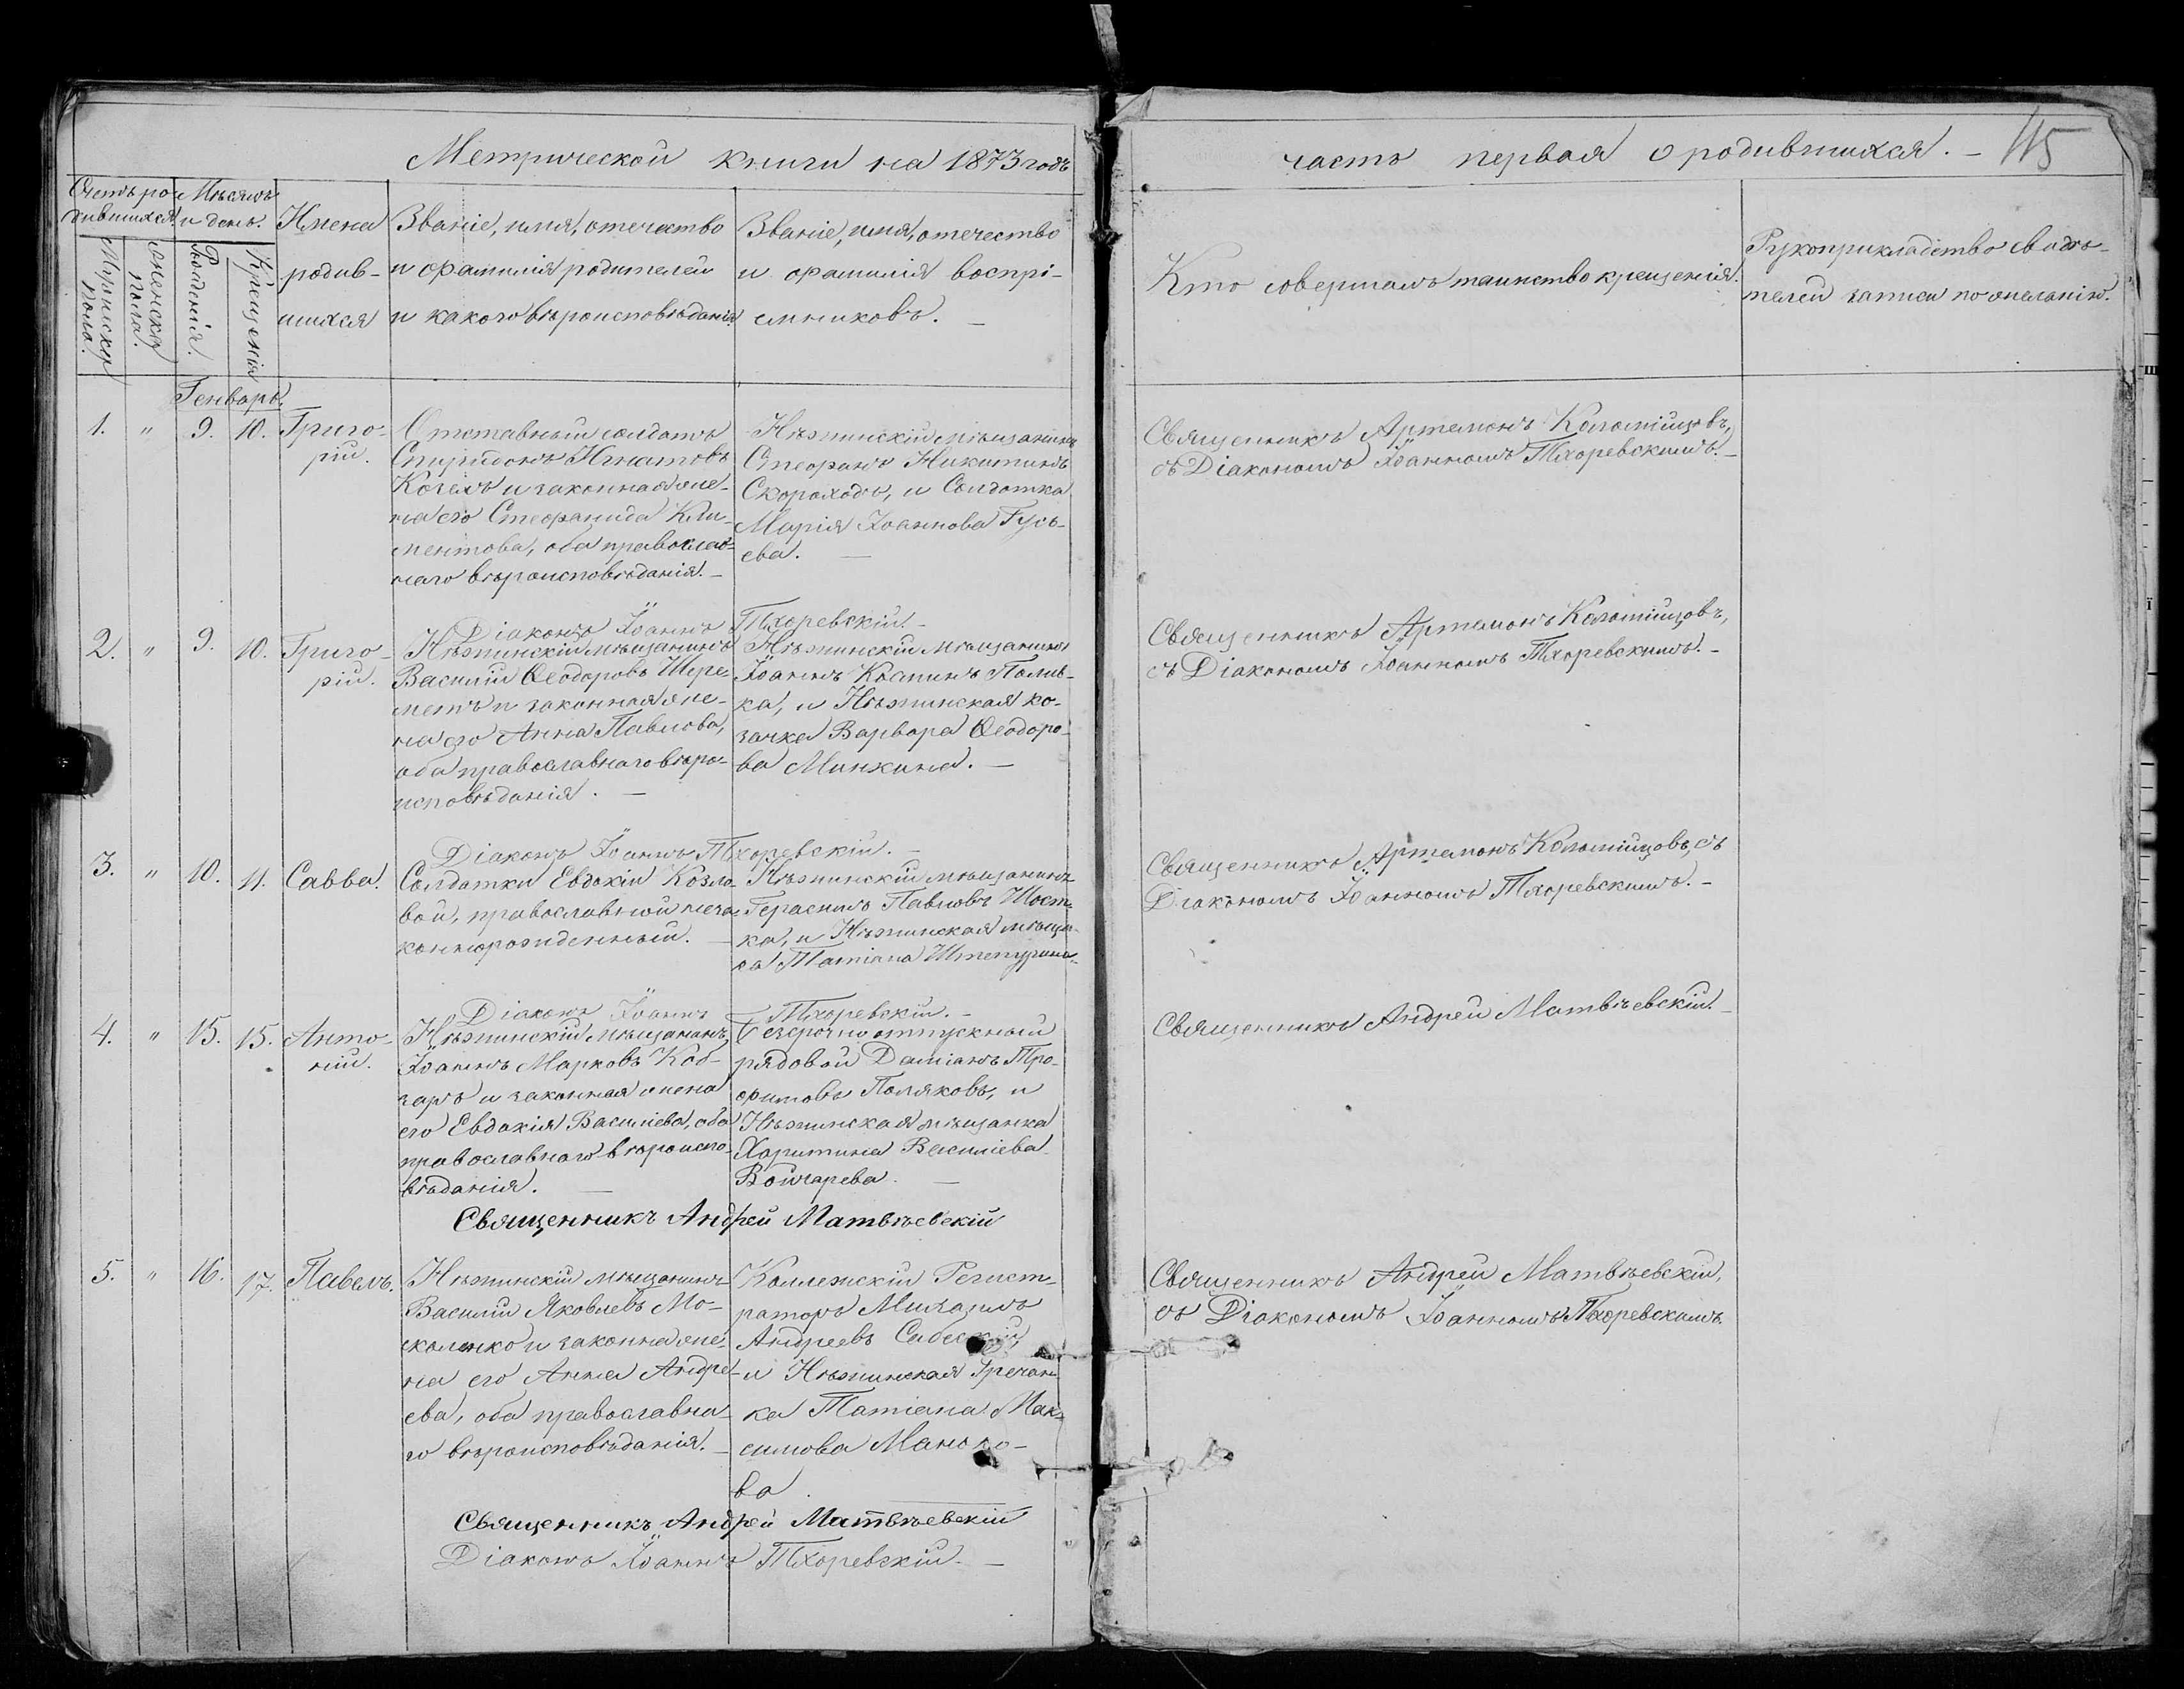 Метрической книги на 1873 годъ
часть первая о родившихся. –
115
Счетъ ро-
дившихся.
Мѣсяцъ
и день.
Мужеска
пола.
Женска
пола.
Рожденія.
Крещенія
Имена
родив-
шихся
Званіе, имя, отечество
и фамилія родителей
и какого вѣроисповѣданія
Званіе, имя, отечество
и фамилія воспрі-
емниковъ. –
Кто совершалъ таинство крещенія.
Рукоприкладство свидѣ-
телей записи по желанію.
Генварь.
1. " 9. 10. Григо-
рій.
Отставный солдатъ
Спиридонъ Игнатовъ
и законная же-
на его Стефанида Кли-
ментова, оба православ-
наго вѣроисповѣданія. –
Нѣжинскій мѣщанинъ
Стефанъ Никитинъ
Скороходъ, и Солдатка
Марія Іоаннова Гусь-
ева. –
Священникъ Артемонъ Коломійцовъ,
съ Діакономъ Іоанномъ Тхоревскимъ. –
Діаконъ Іоаннъ Тхоревскій. –
2. " 9. 10. Григо-
рій.
Нѣжинскій мѣщанинъ
Василій Ѳеодоровъ Шере-
метъ и законная же-
на его Анна Павлова,
оба православнаго вѣро-
исповѣданія. –
Нѣжинскій мѣщанинъ
Іоаннъ Косминъ Полив-
ка, и Нѣжинская ко-
зачка Варвара Ѳеодоро-
ва Минкина. –
Священникъ Артемонъ Коломійцовъ,
съ Діакономъ Іоанномъ Тхоревскимъ. –
Діаконъ Іоаннъ Тхоревскій. –
3. " 10. 11. Савва.
Солдатки Евдокіи Козло-
вой, православной неза-
коннорожденный. –
Нѣжинскій мѣщанинъ
Герасимъ Павловъ Шост-
ка, и Нѣжинская мѣщан-
ка Татіана
Священникъ Артемонъ Коломійцовъ, съ
Діакономъ Іоанномъ Тхоревскимъ. –
Діаконъ Іоаннъ Тхоревскій. –
4. " 15. 15. Анто-
ній.
Нѣжинскій мѣщанинъ
Іоаннъ Марковъ Коб-
заръ и законная жена
его Евдокія Василіева, оба
православнаго вѣроиспо-
вѣданія. –
Безсрочно отпускный
рядовой Даміанъ Тро-
фимовъ Поляковъ, и
Нѣжинская мѣщанка
Харитина Василіева
Войчарева. –
Священникъ Андрей Матвѣевскій. –
Священникъ Андрей Матвѣевскій
5. " 16. 17. Павелъ.
Нѣжинскій мѣщанинъ
Василій Яковлевъ Мо-
скаленко и законна же-
на его Анна Андре-
ева, оба православна-
го вѣроисповѣданія. –
Коллежскій Регист-
раторъ Михаилъ
Андреевъ
и Нѣжинская Гречан-
ка Татіана Мак-
симова
ва.
Священникъ Андрей Матвѣевскій,
съ Діакономъ Іоанномъ Тхоревскимъ
Священникъ Андрей Матвѣевскій
Діаконъ Іоаннъ Тхоревскій. –